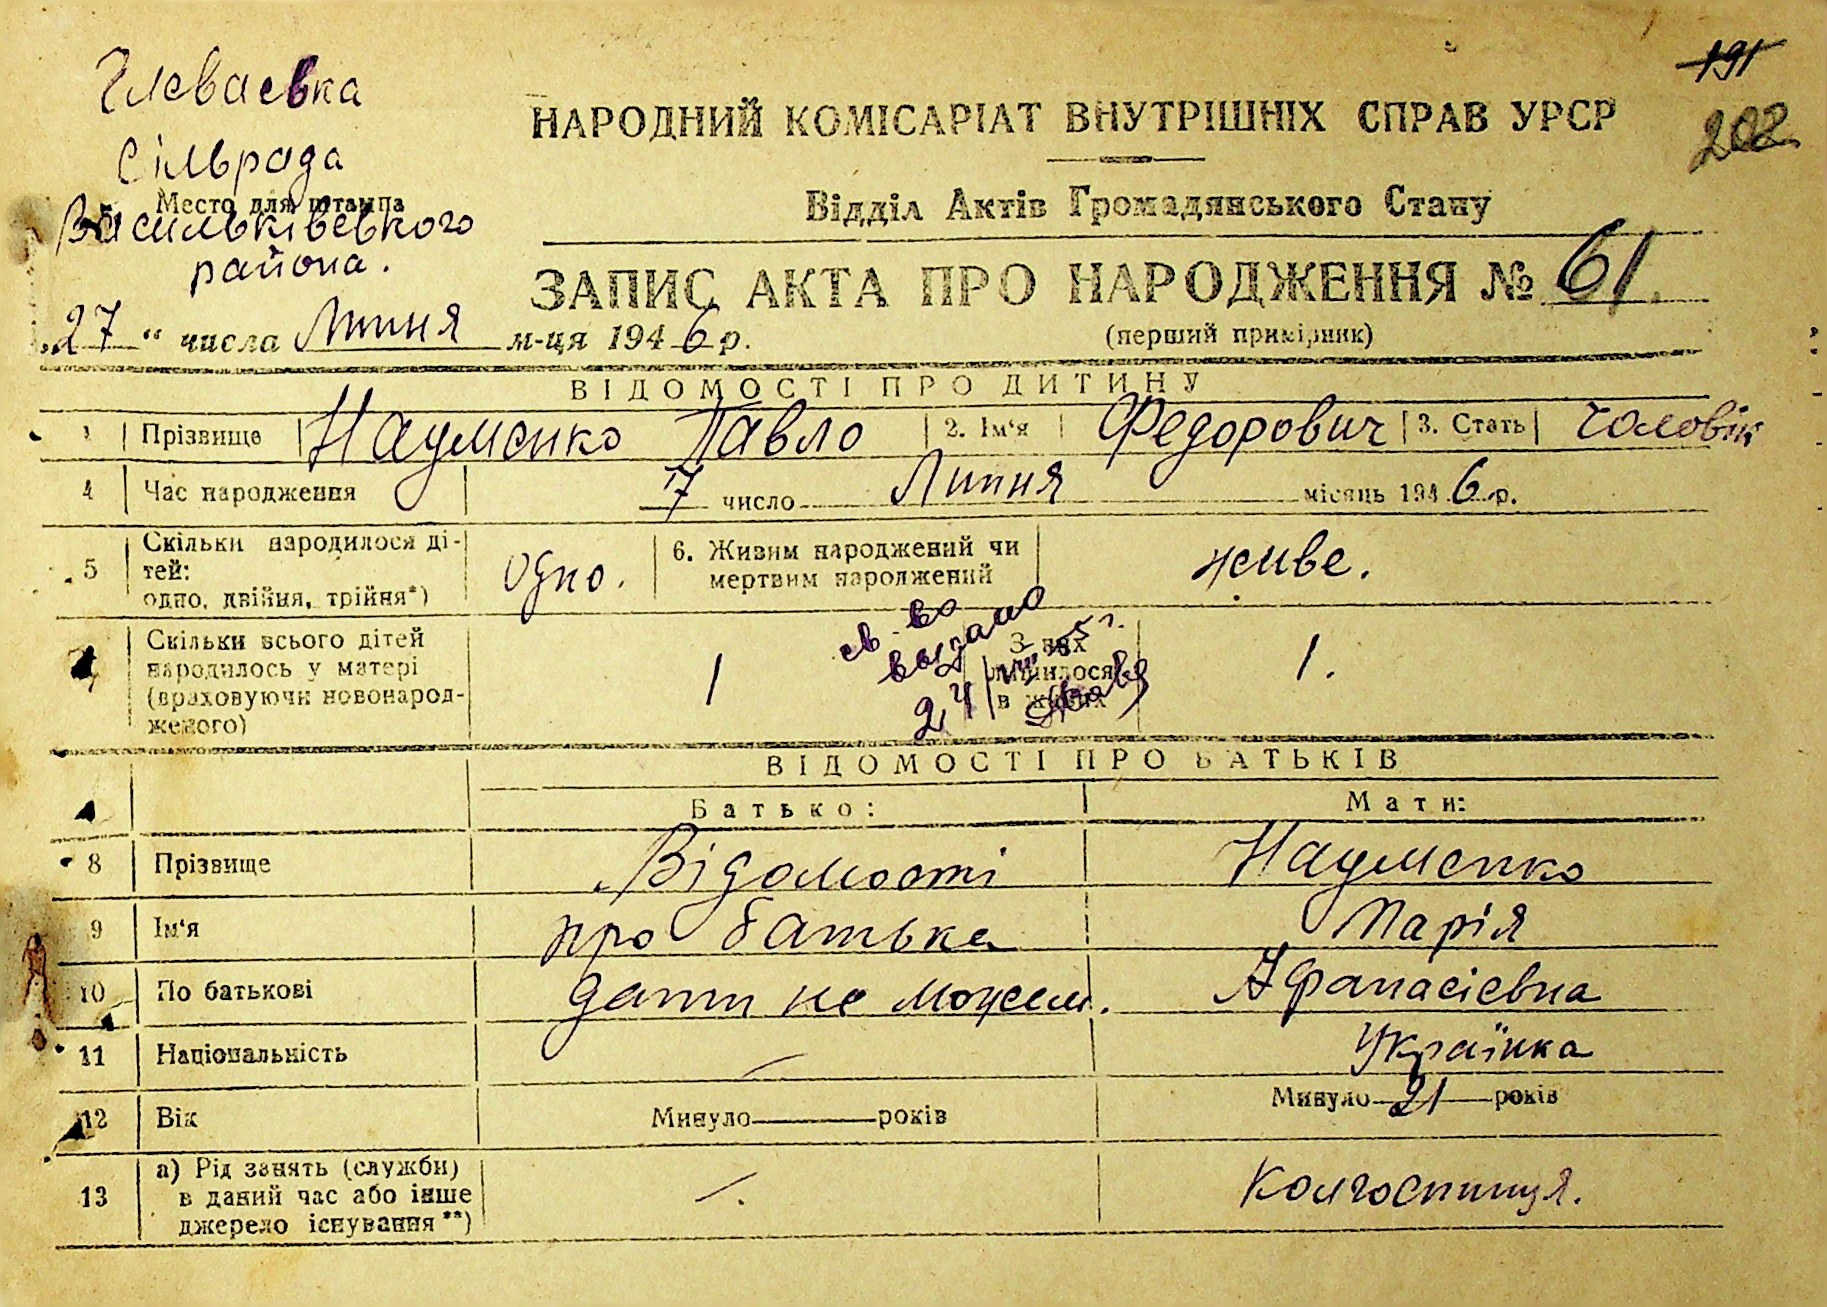 191
202
Глеваевка
сільрада
Место для штампа
Васильківського
района.
НАРОДНИЙ КОМІСАРІАТ ВНУТРІШНІХ СПРАВ УРСР
Відділ Актів Громадянського Стану
ЗАПИС АКТА ПРО НАРОДЖЕННЯ № 61.
(перший примірник)
„27“ числа Липня м-ця 1946 р.
ВІДОМОСТІ ПРО ДИТИНУ
1 Прізвище Науменко Павло 2. Ім‘я Федорович 3. Стать чоловік
4 Час народження 17 число Липня місяць 1946 р.
5 Скільки народилося ді-
тей:
одно, двійня, трійня*) одно. 6. Живим народжений чи
мертвим народжений живе.
Скільки всього дітей
народилось у матері
(враховуючи новонарод-
женого) 1 З них
лишилося
в живих 1.
св-во
выдано
24
ВІДОМОСТІ ПРО БАТЬКІВ
Батько: Мати:
8 Прізвище Відомості Науменко
9 Ім‘я про батька Марія
10 По батькові дати не може. Афанасієвна
11 Національність — Українка
12 Вік Минуло — років Минуло 21 років
13 а) Рід занять (служби)
в даний час або інше
джерело існування**) —. Колгоспниця.